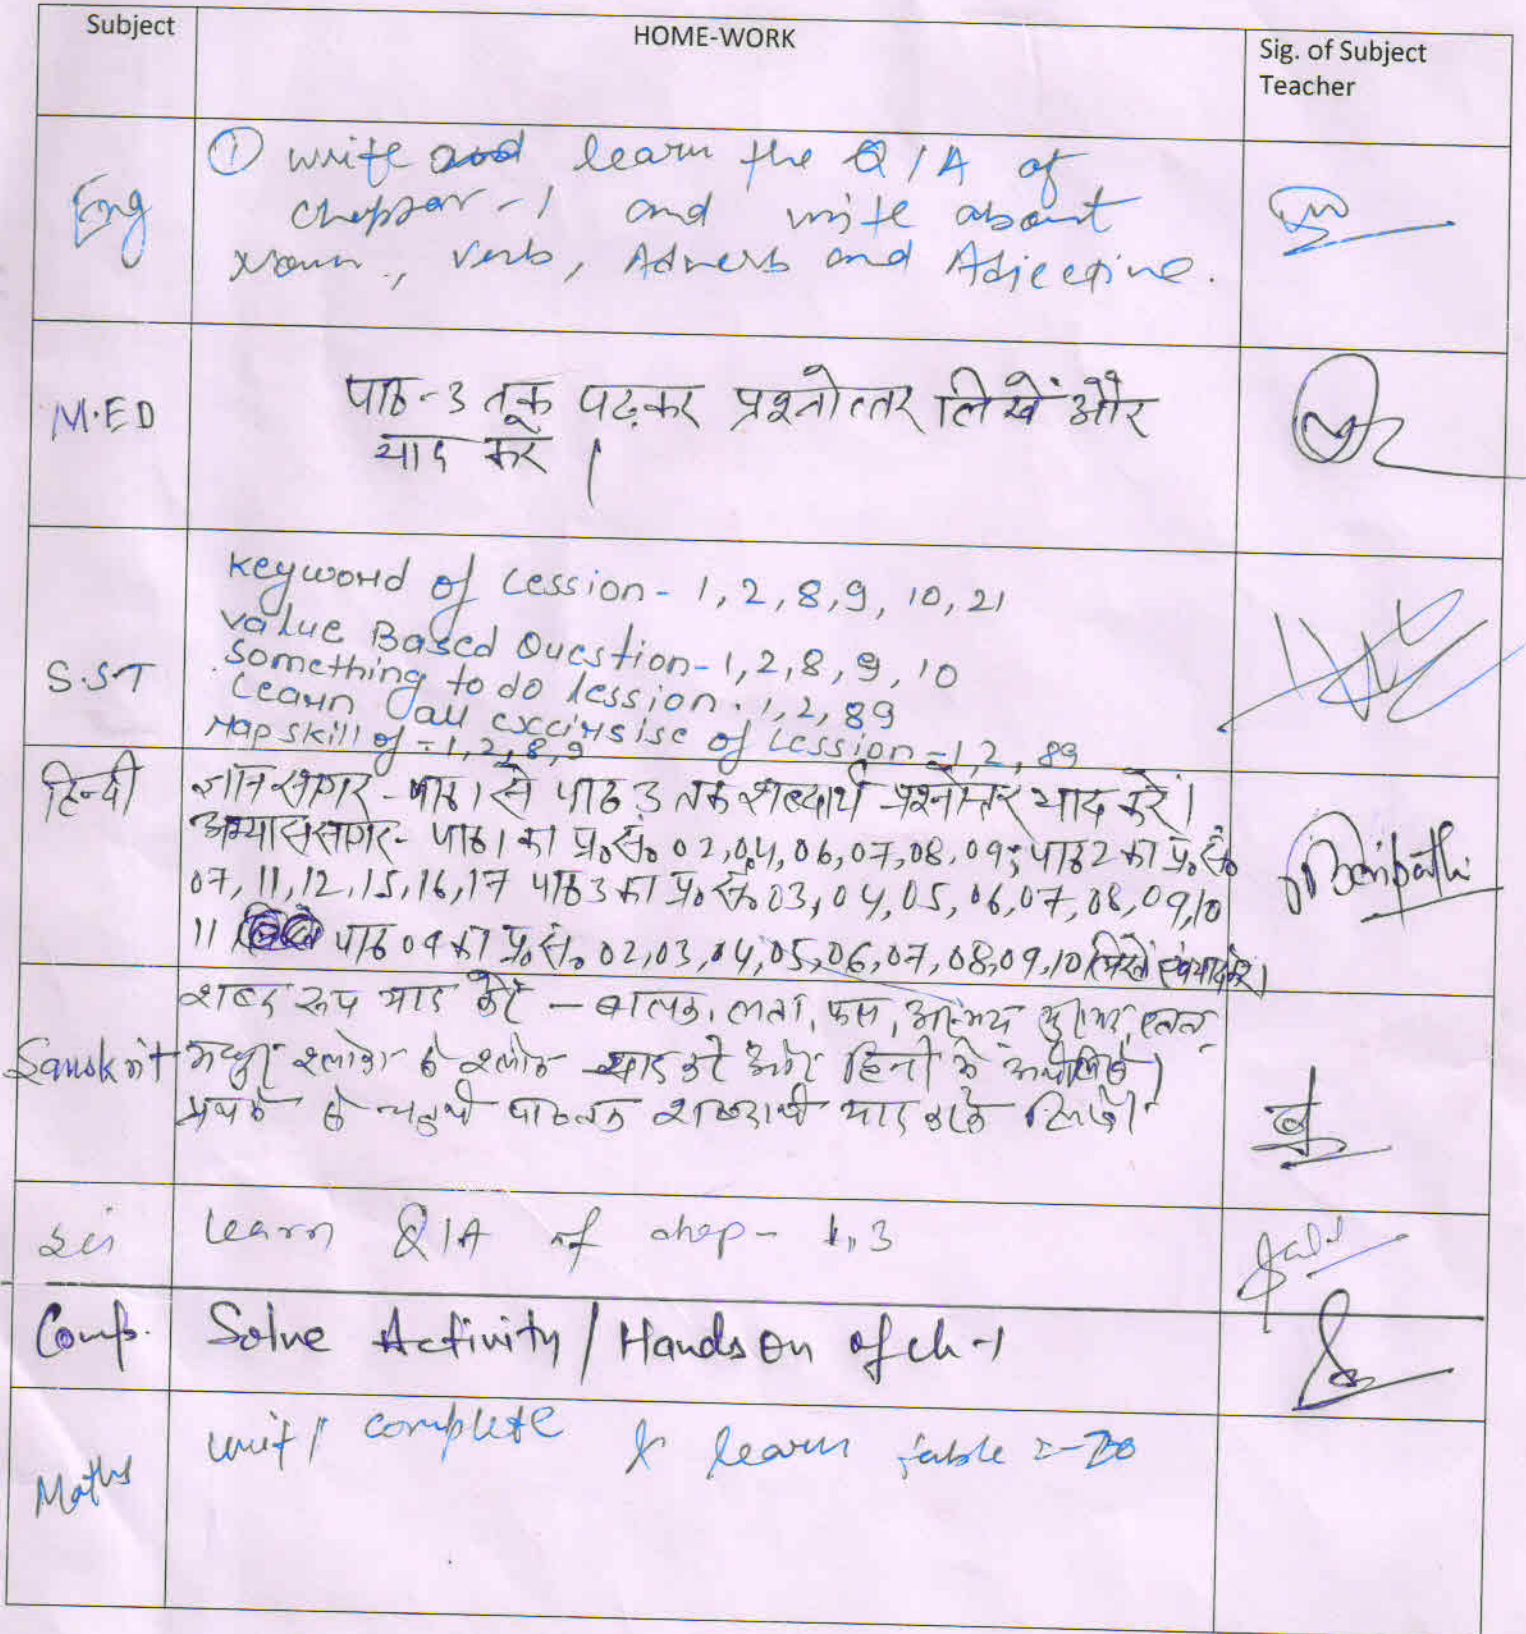 Subject HOME-WORK Sig. of Subject
Teacher
Eng ① write and learn the Q/A of
chapter-1 and write about
Noun, Verb, Adverb and Adjective.
M.ED पाठ-3 तक पढ़कर प्रश्नोत्तर लिखें और
याद करें |
S.S.T keyword of Lession - 1, 2, 8, 9, 10, 21
value Based Question - 1, 2, 8, 9, 10
something to do lession . 1, 2, 89
Learn all of Lession = 1, 2, 89
Map skill of = 1, 2, 8, 9
हिन्दी ज्ञान सागर - पाठ 1 से पाठ 3 तक शब्दार्थ प्रश्नोत्तर याद करें।
अभ्यास सागर - पाठ 1 का प्र॰सं॰ 02, 04, 06, 07, 08, 09; पाठ 2 का प्र॰सं॰
07, 11, 12, 15, 16, 17 पाठ 3 का प्र॰सं॰ 03, 04, 05, 06, 07, 08, 09, 10
11 पाठ 04 का प्र॰सं॰ 02, 03, 04, 05, 06, 07, 08, 09, 10 लिखें एवं याद करें।
Sanskrit शब्द रूप याद करें - बालक, लता, फल,
श्लोक याद करें और हिन्दी में
शब्दार्थ याद करके लिखें।
Sci Learn Q/A of chap - 1, 3
Comp. Solve Activity / Hands On of ch-1
Maths unit 1 complete & learn table 2-20